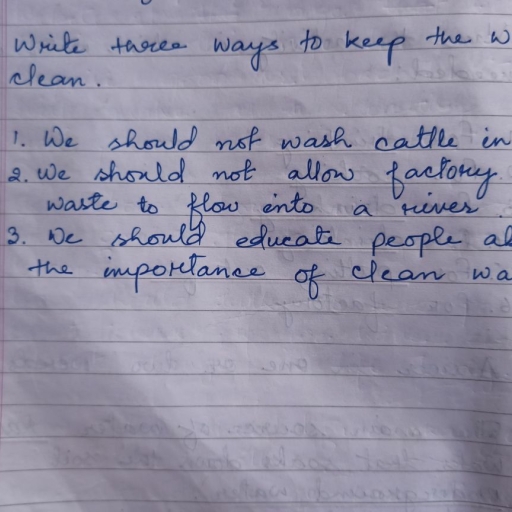 Write three ways to keep the w
clean.
1. We should not wash cattle in
2. We should not allow factory
waste to flow into a river.
3. We should educate people al
the importance of clean wa